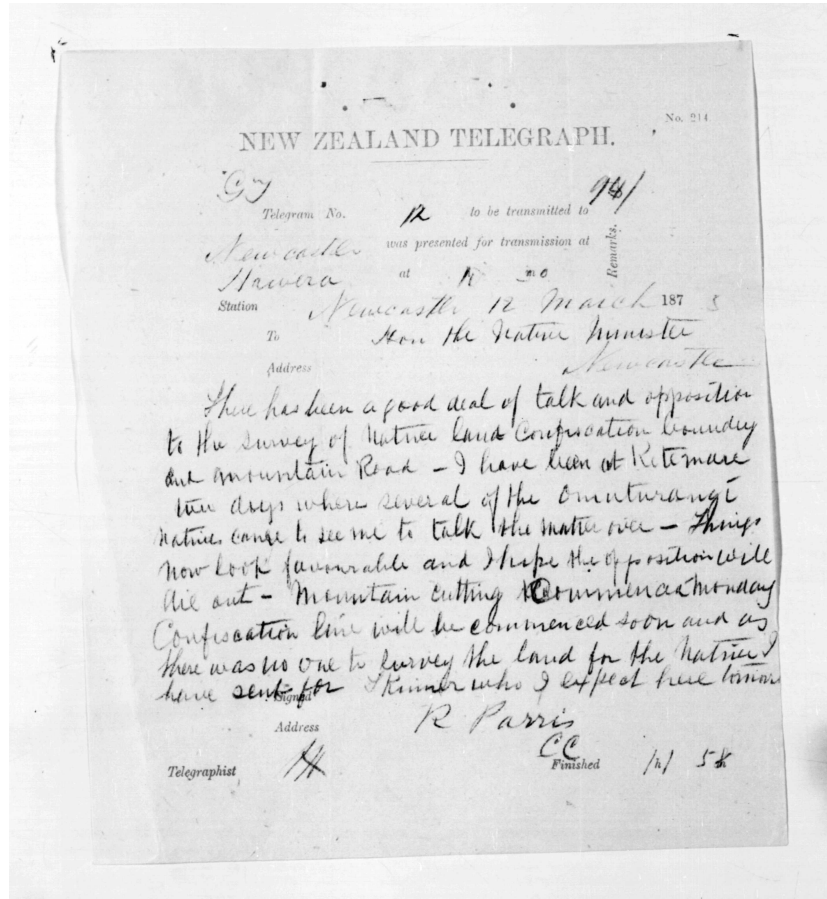 No. 214
NEW ZEALAND TELEGRAPH.
Telegram No. 12 to be transmitted to
Remarks.
Newcastle was presented for transmission at
Hawera at
Station Newcastle 12 March 187
To Hon the Native Minister
Address Newcastle
There has been a good deal of talk and opposition
to the survey of Native land Confiscation boundry
and mountain Road – I have been at Ketemare
two days where several of the Omuturangi
natives came to see me to talk the matter over – Things
now look favourable and I hope the opposition will
die out – Mountain cutting Commenced Monday
Confiscation line will be commenced soon and as
there was no one to survey the land for the Natives I
have sent for Skinner who I expect here
Signed
R Parris
Address
CC
Telegraphist
Finished